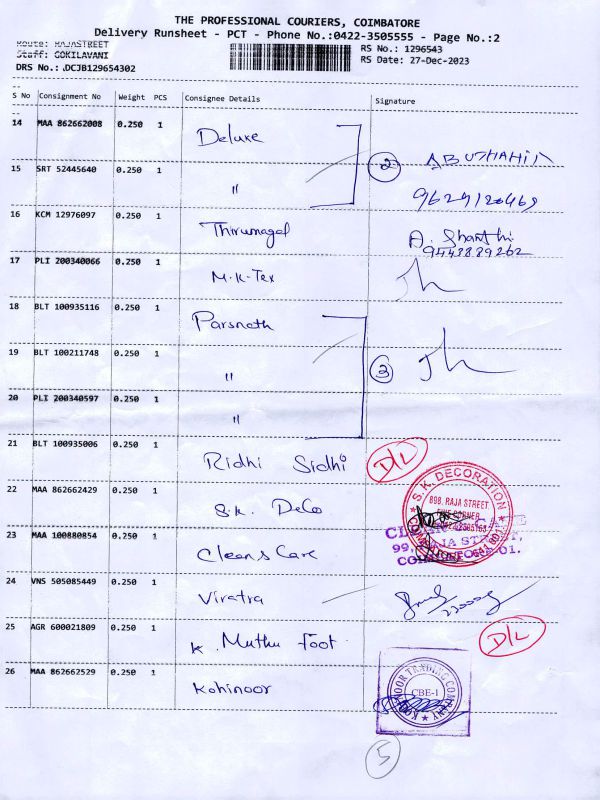 THE PROFESSIONAL COURIERS, COIMBATORE
Delivery Runsheet - PCT - Phone No.:0422-3505555 - Page No.:2
Route: RAJASTREET
Staff: GOKILAVANI
DRS No.: DCJB129654302
RS No.: 1296543
RS Date: 27-Dec-2023
S No Consignment No Weight PCS Consignee Details Signature
14 MAA 862662008 0.250 1 Deluxe
15 SRT 52445640 0.250 1 " 2 ABUTHAHIR
9629120469
16 KCM 12976097 0.250 1 Thirumagal A. Shanthi
9443889262
17 PLI 200340066 0.250 1 M.K.Tex
18 BLT 100935116 0.250 1 Parsnath
19 BLT 100211748 0.250 1 " 3
20 PLI 200340597 0.250 1 "
21 BLT 100935006 0.250 1 Ridhi Sidhi D/L
22 MAA 862662429 0.250 1 S.K. Deco
S.K. DECORATION
898, RAJA STREET
23 MAA 100880854 0.250 1 Cleans Care
99, RAJA STREET,
COIMBATORE-01.
24 VNS 505085449 0.250 1 Viratra
25 AGR 600021809 0.250 1 K. Muthu Foot D/L
26 MAA 862662529 0.250 1 Kohinoor
KOHINOOR TRADING COMPANY
CBE-1
5